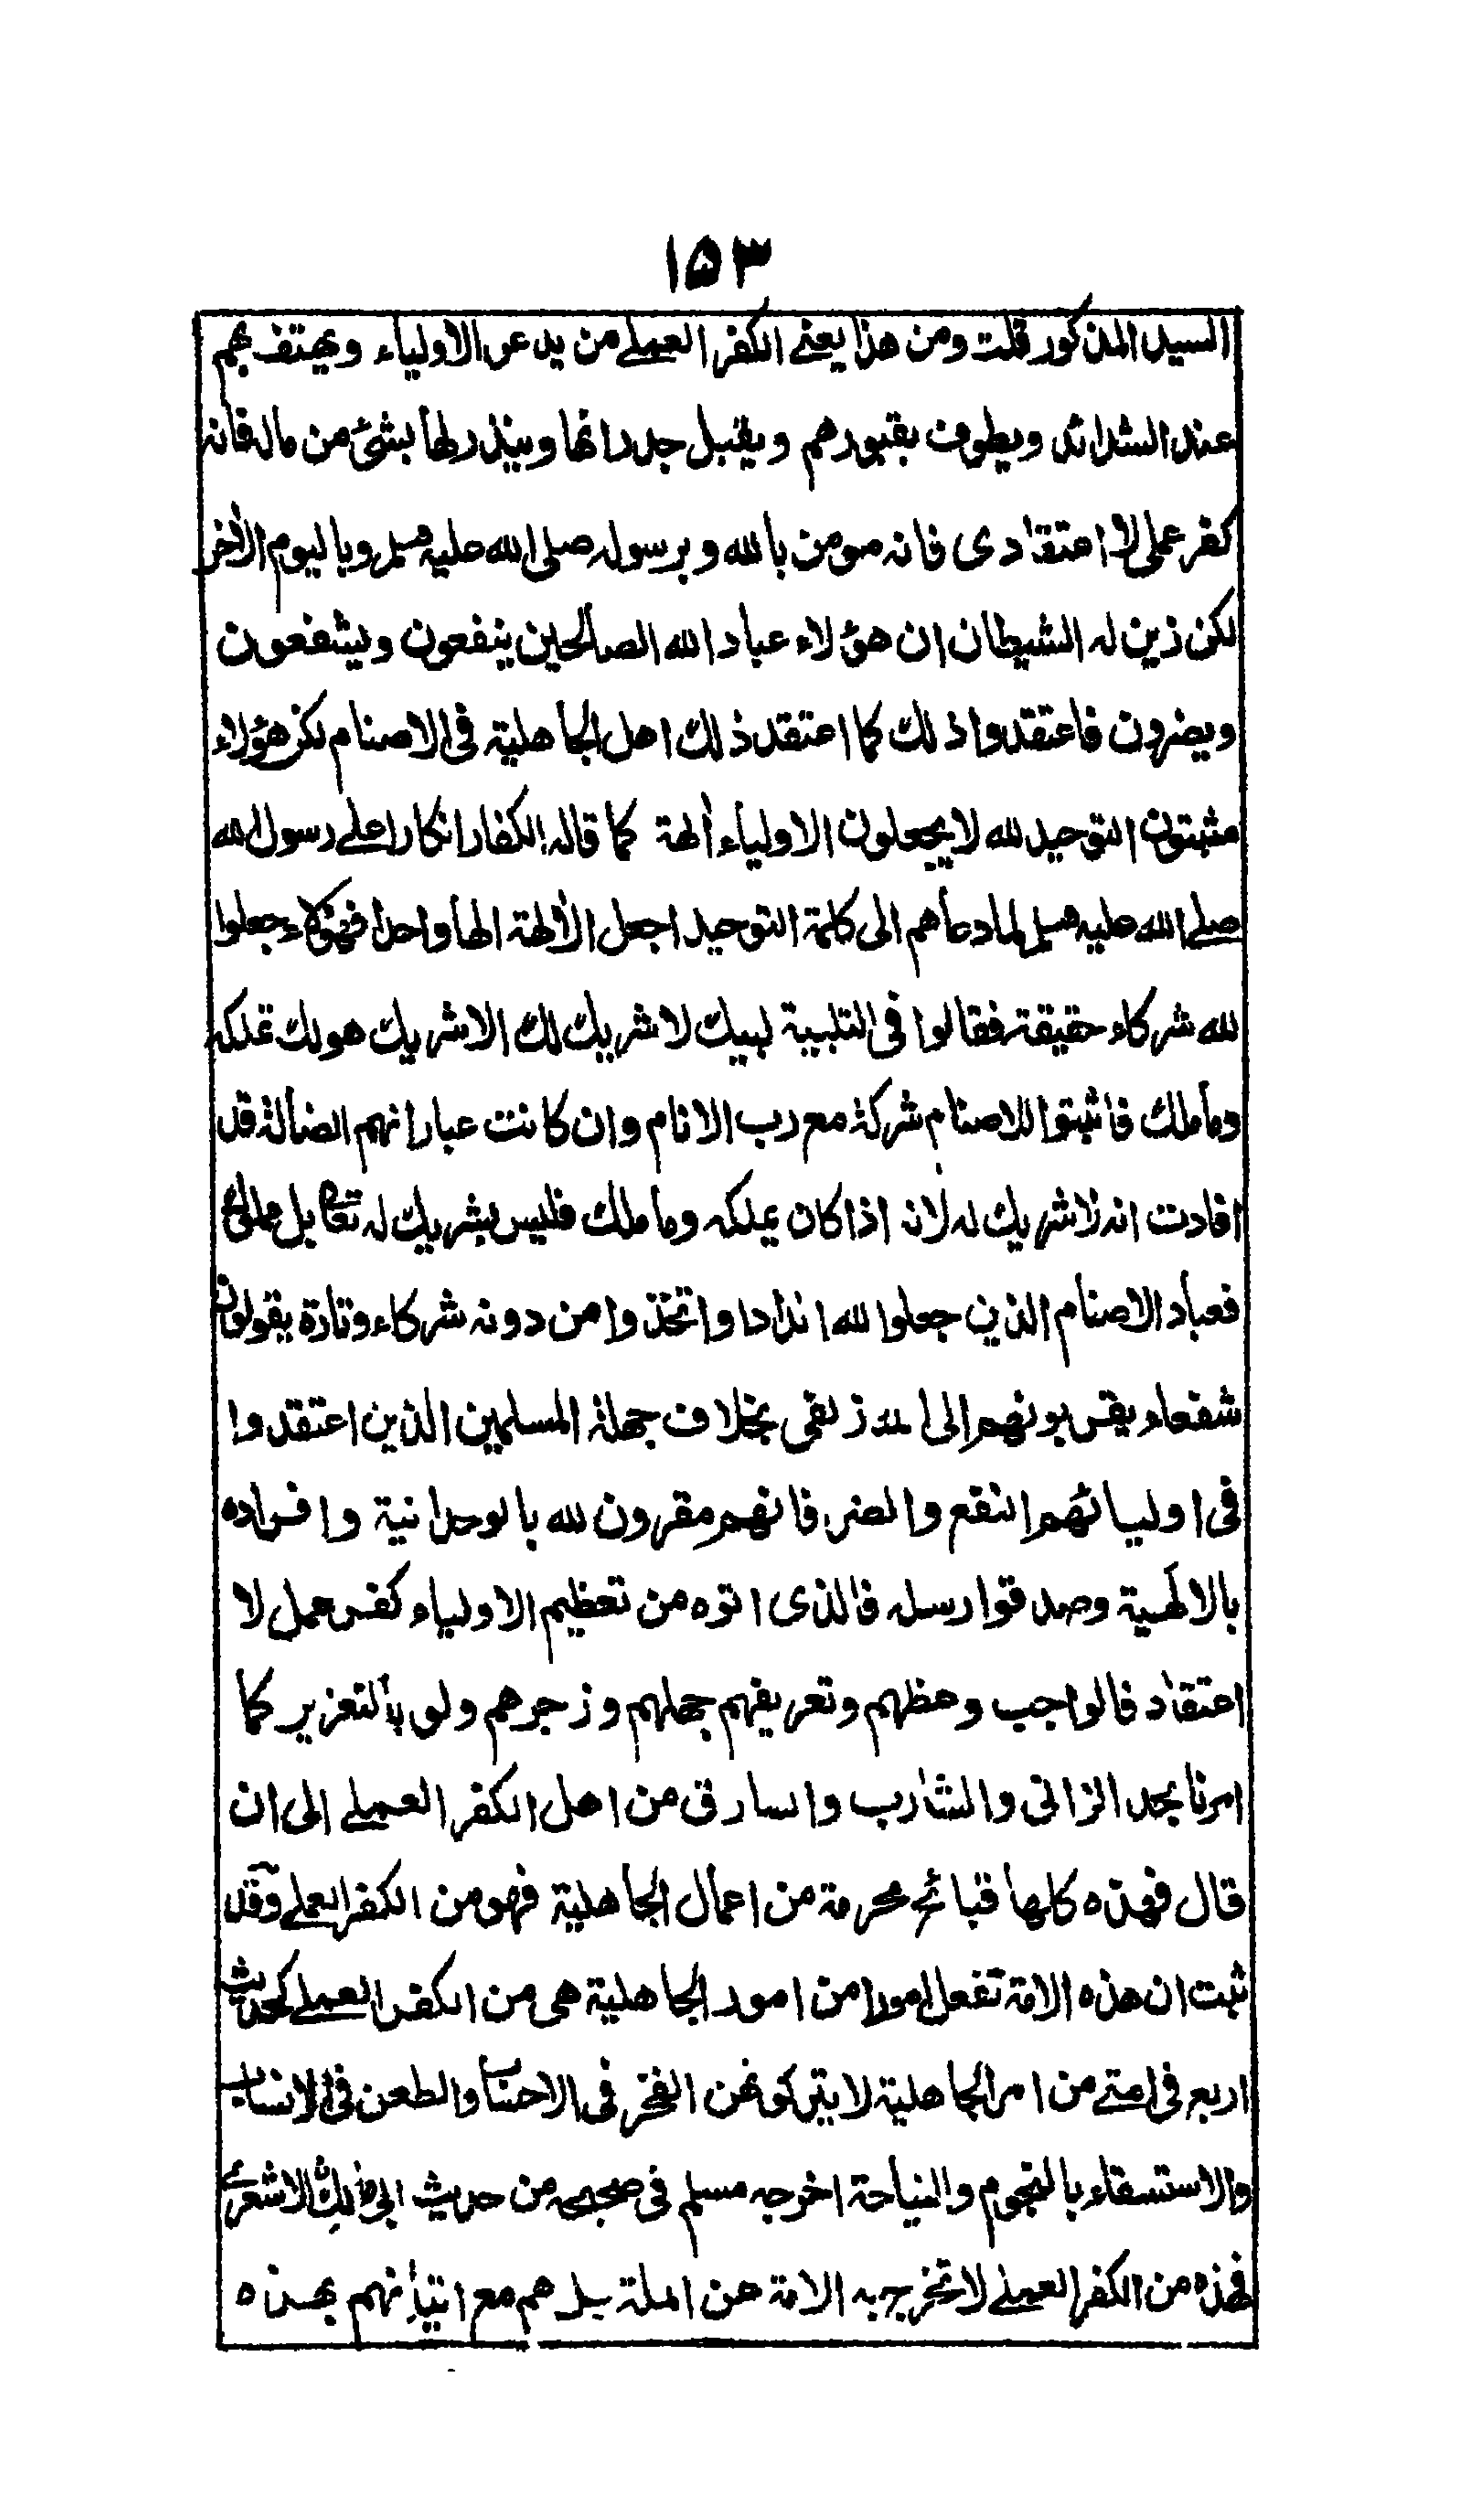 ۱۵۳
السيد المذكور قلت ومن هذا يعنے الكفر العملے من يدعو الاولياء ويهتف بهم
عند الشدائد ويطوف بقبورهم ويقبل جدراتها وينذر لها بشئ من ماله فانه
كفر عملى لا اعتقادى فانه مومن بالله وبرسوله صلى الله عليه وسلم وباليوم الآخر
لكن زين له الشيطان ان هؤلاء عباد الله الصالحين ينفعون ويشفعون
ويضرون فاعتقدوا ذلك كما اعتقد ذلك اهل الجاهلية فى الاصنام لكن هؤلاء
مثبتون التوحيد لله لا يجعلون الاولياء ألهة كما قاله الكفار انكارا علے رسول الله
صلے الله عليه وسلم لما دعاهم الى كلمة التوحيد اجعل الألهة الها واحدا فهؤلاء جعلوا
لله شركاء حقيقة فقالوا فى التلبية لبيك لا شريك لك الا شريك هو لك تملكه
وما ملك فاثبتوا للاصنام شركة مع رب الانام وان كانت عباراتهم الضالة قد
افادت انه لا شريك له لانه اذا كان يملكه وما ملك فليس بشريك له تعالى بل مملوك
فعباد الاصنام الذين جعلوا لله اندادا واتخذوا من دونه شركاء وتارة يقولون
شفعاء يقربونهم الى الله زلفى بخلاف جهلة المسلمين الذين اعتقدوا
فى اوليائهم النفع والضر فانهم مقرون لله بالوحدانية وافراده
بالالهية وصدقوا رسله فالذى اتوه من تعظيم الاولياء كفر عمل لا
اعتقاد فالواجب وعظهم وتعريفهم جهلهم وزجرهم ولو بالتعزير كما
امرنا بحد الزانى والشارب والسارق من اهل الكفر العملے الى ان
قال فهذه كلها قبائح محرمة من اعمال الجاهلية فهو من الكفر العملے وقد
ثبت ان هذه الامة تفعل امورا من امور الجاهلية هى من الكفر العملے كحديث
اربع فى امتے من امر الجاهلية لا يتركونهن الفخر فى الاحساب والطعن فى الانساب
والاستسقاء بالنجوم والنياحة اخرجه مسلم فى صحيحه من حديث ابى مالك الاشعرى
فهذه من الكفر العملے لا تخرج به الامة عن الملة بل هم مع اتيانهم بهذه